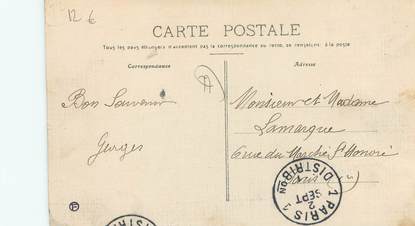 12 €
CARTE POSTALE
Tous les pays étrangers n'acceptent pas la correspondance au recto, se renseigner à la poste
Correspondance
Adresse
Bon Souvenir
Georges
Monsieur et Madame
Lamarque
6 rue du Marché St Honoré
Paris
PARIS 1
DISTRIBON
2
SEPT
DISTRIB